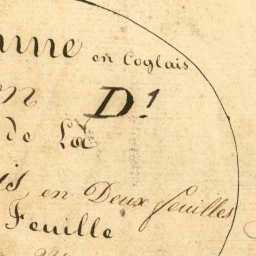 mme en Coglais
on D.1
de La
is, en Deux feuilles
Feuille